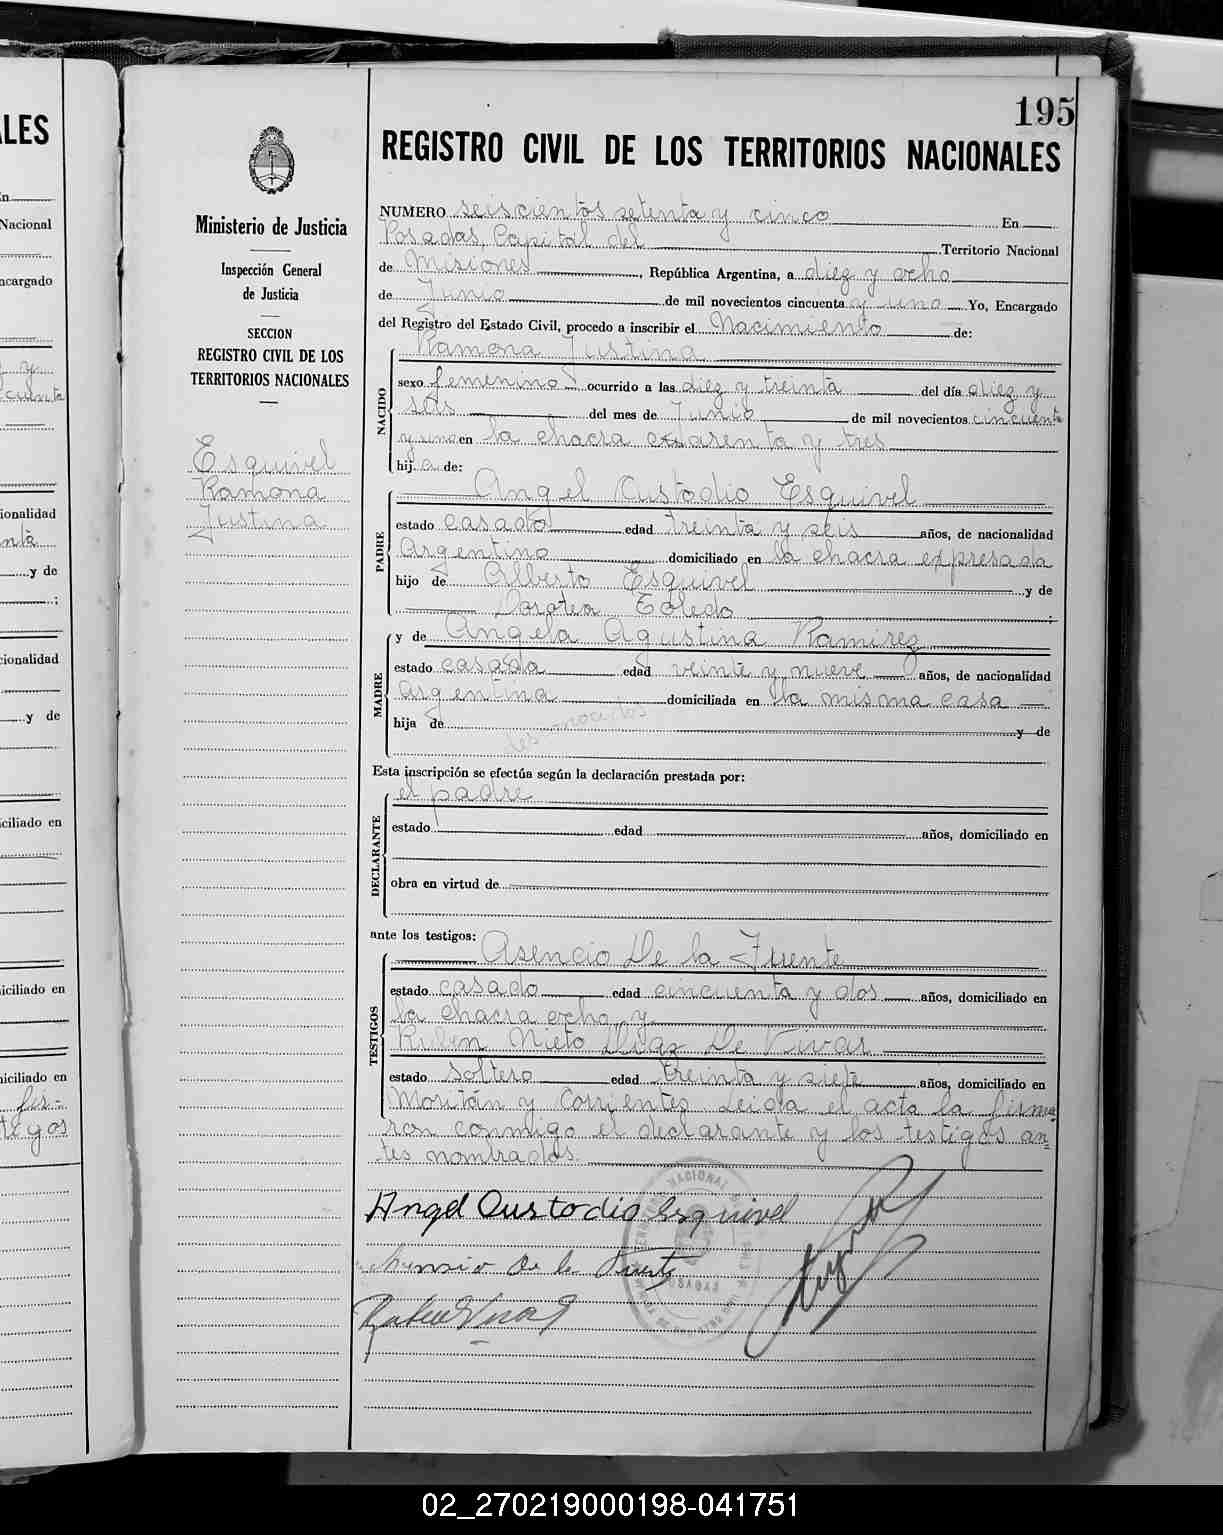 195
REGISTRO CIVIL DE LOS TERRITORIOS NACIONALES
Ministerio de Justicia
Inspección General
de Justicia
SECCION
REGISTRO CIVIL DE LOS
TERRITORIOS NACIONALES
Esquivel
Ramona
Justina
NUMERO seiscientos setenta y cinco En
Posadas, Capital del Territorio Nacional
de Misiones, República Argentina, a diez y ocho
de Junio de mil novecientos cincuenta y uno Yo, Encargado
del Registro del Estado Civil, procedo a inscribir el Nacimiento de:
Ramona Justina
NACIDO
sexo femenino ocurrido a las diez y treinta del día diez y
seis del mes de Junio de mil novecientos cincuenta
y uno en la chacra cuarenta y tres
hija de:
Angel Custodio Esquivel
PADRE
estado casado edad treinta y seis años, de nacionalidad
Argentino domiciliado en la chacra expresada
hijo de Alberto Esquivel y de
Dorotea Toledo ;
y de Angela Agustina Ramirez
MADRE
estado casada edad veinte y nueve años, de nacionalidad
Argentina domiciliada en la misma casa
hija de desconocidos y de
Esta inscripción se efectúa según la declaración prestada por:
el padre
DECLARANTE
estado edad años, domiciliado en
obra en virtud de
ante los testigos:
Asencio De la Fuente
TESTIGOS
estado casado edad cincuenta y dos años, domiciliado en
la chacra ocho y
Ruben Nieto Diaz De Vivar
estado soltero edad treinta y siete años, domiciliado en
Moritán y Corrientes. Leida el acta la firma
ron conmigo el declarante y los testigos an=
tes nombrados.
Angel Custodio Esquivel
de la Fuente
ALES
En
Nacional
ncargado
y
cuenta
cionalidad
nta
y de
;
cionalidad
y de
ciliado en
iciliado en
iciliado en
fir=
tigos
02_270219000198-041751